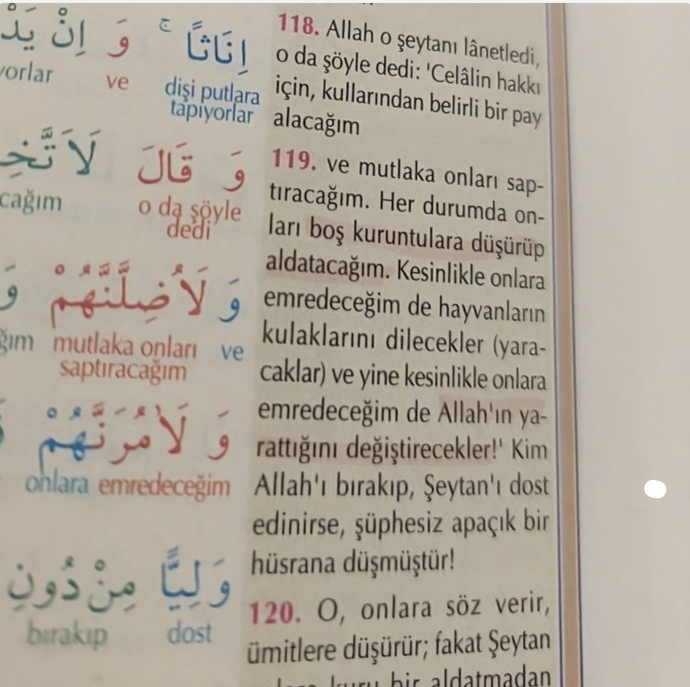 118. Allah o şeytanı lânetledi,
o da şöyle dedi: 'Celâlin hakkı
için, kullarından belirli bir pay
alacağım
119. ve mutlaka onları sap-
tıracağım. Her durumda on-
ları boş kuruntulara düşürüp
aldatacağım. Kesinlikle onlara
emredeceğim de hayvanların
kulaklarını dilecekler (yara-
caklar) ve yine kesinlikle onlara
emredeceğim de Allah'ın ya-
rattığını değiştirecekler!' Kim
Allah'ı bırakıp, Şeytan'ı dost
edinirse, şüphesiz apaçık bir
hüsrana düşmüştür!
120. O, onlara söz verir,
ümitlere düşürür; fakat Şeytan
kuru bir aldatmadan
اِنَاثًاۚ وَ اِنْ
dişi putlara ve
tapıyorlar
وَ قَالَ لَاَتَّخِ
o da şöyle
dedi
وَ لَاُضِلَّنَّهُمْ وَ
ve mutlaka onları
saptıracağım
وَ لَاٰمُرَنَّهُمْ
onlara emredeceğim
وَلِيًّا مِنْ دُونِ
dost bırakıp